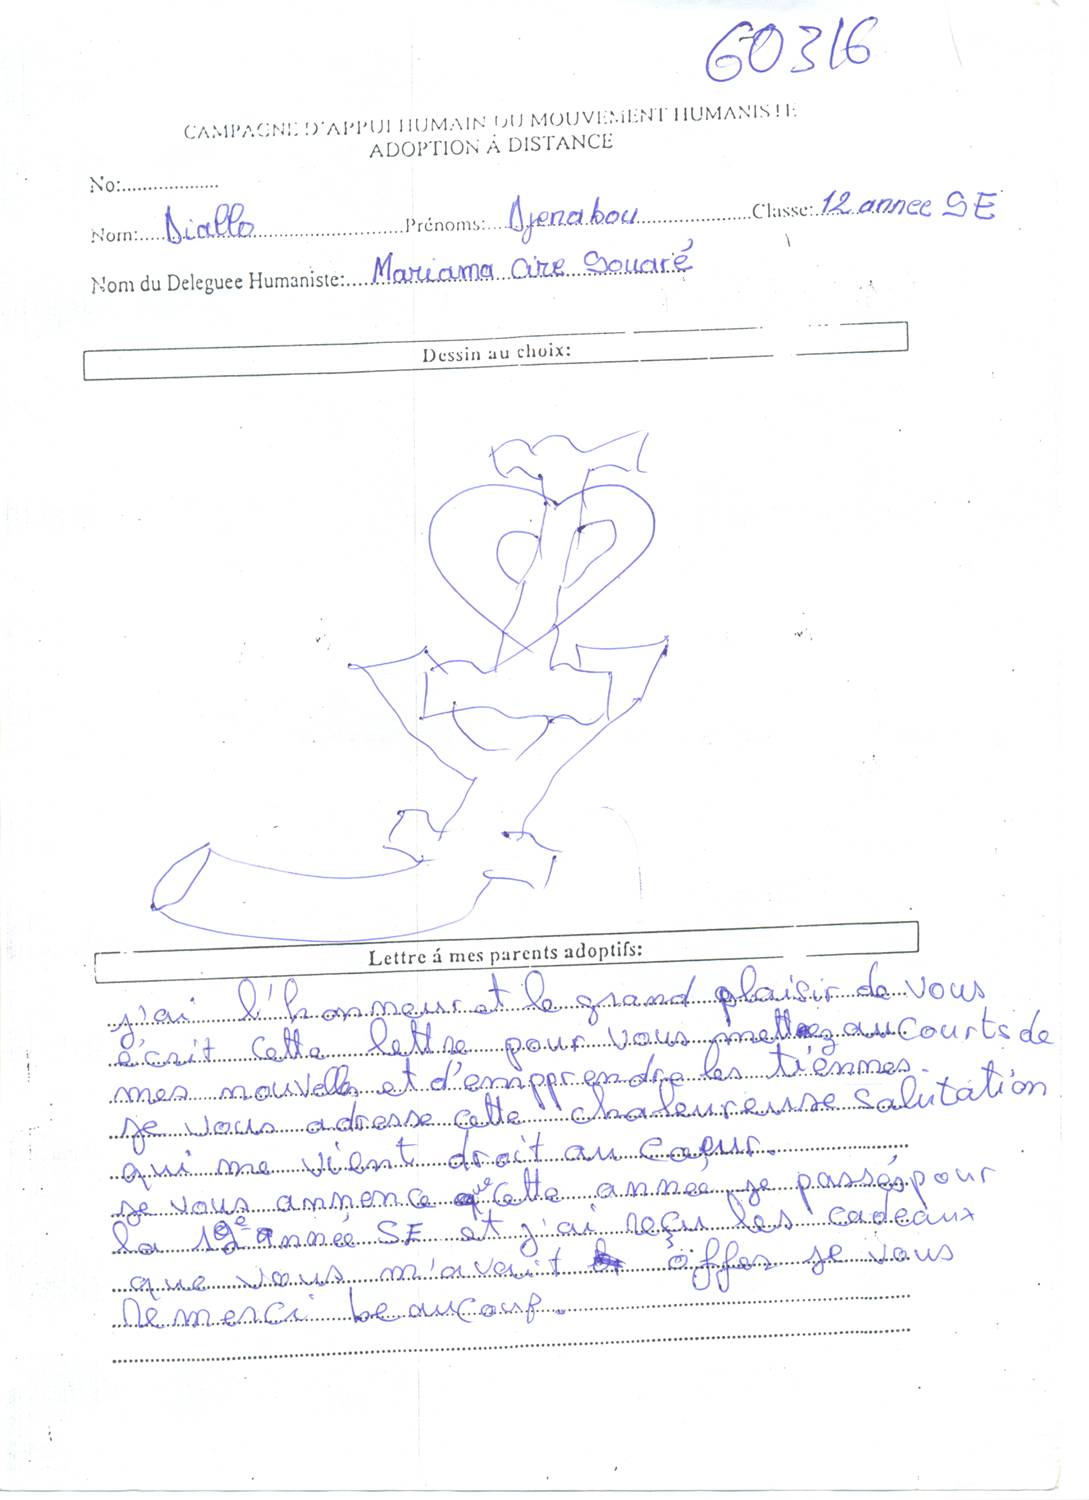 60316
CAMPAGNE D'APPUI HUMAIN DU MOUVEMENT HUMANISTE
ADOPTION À DISTANCE
No:...................
Nom:.....Diallo.............................Prénoms:....Djenabou......................Classe:.12 annee SE
Nom du Deleguee Humaniste:.....Mariama Cire Souaré
Dessin au choix:
Lettre á mes parents adoptifs:
j'ai l'honneur et le grand plaisir de vous
écrit cette lettre pour vous mettez au courts de
mes nouvelles et d'empprendre les tiénnes.
je vous adresse cette chaleureuse salutation
qui me vient droit au cœur.
je vous annence que cette année, je passés pour
la 12e année SE et j'ai reçu les cadeaux
que vous m'avait offer je vous
Remerci beaucoup.